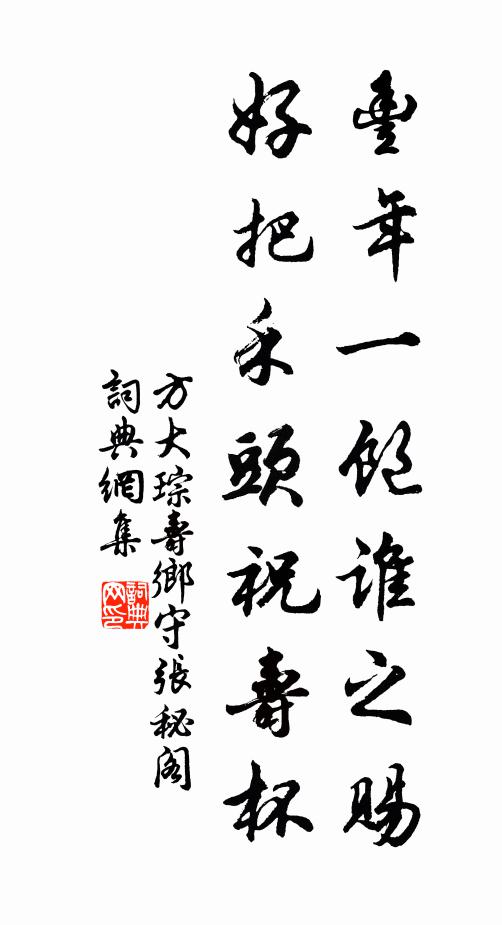 豐年一飽誰之賜
好把禾頭祝壽杯
方大琮壽鄉守張秘閣
詞典網集
詞典网印